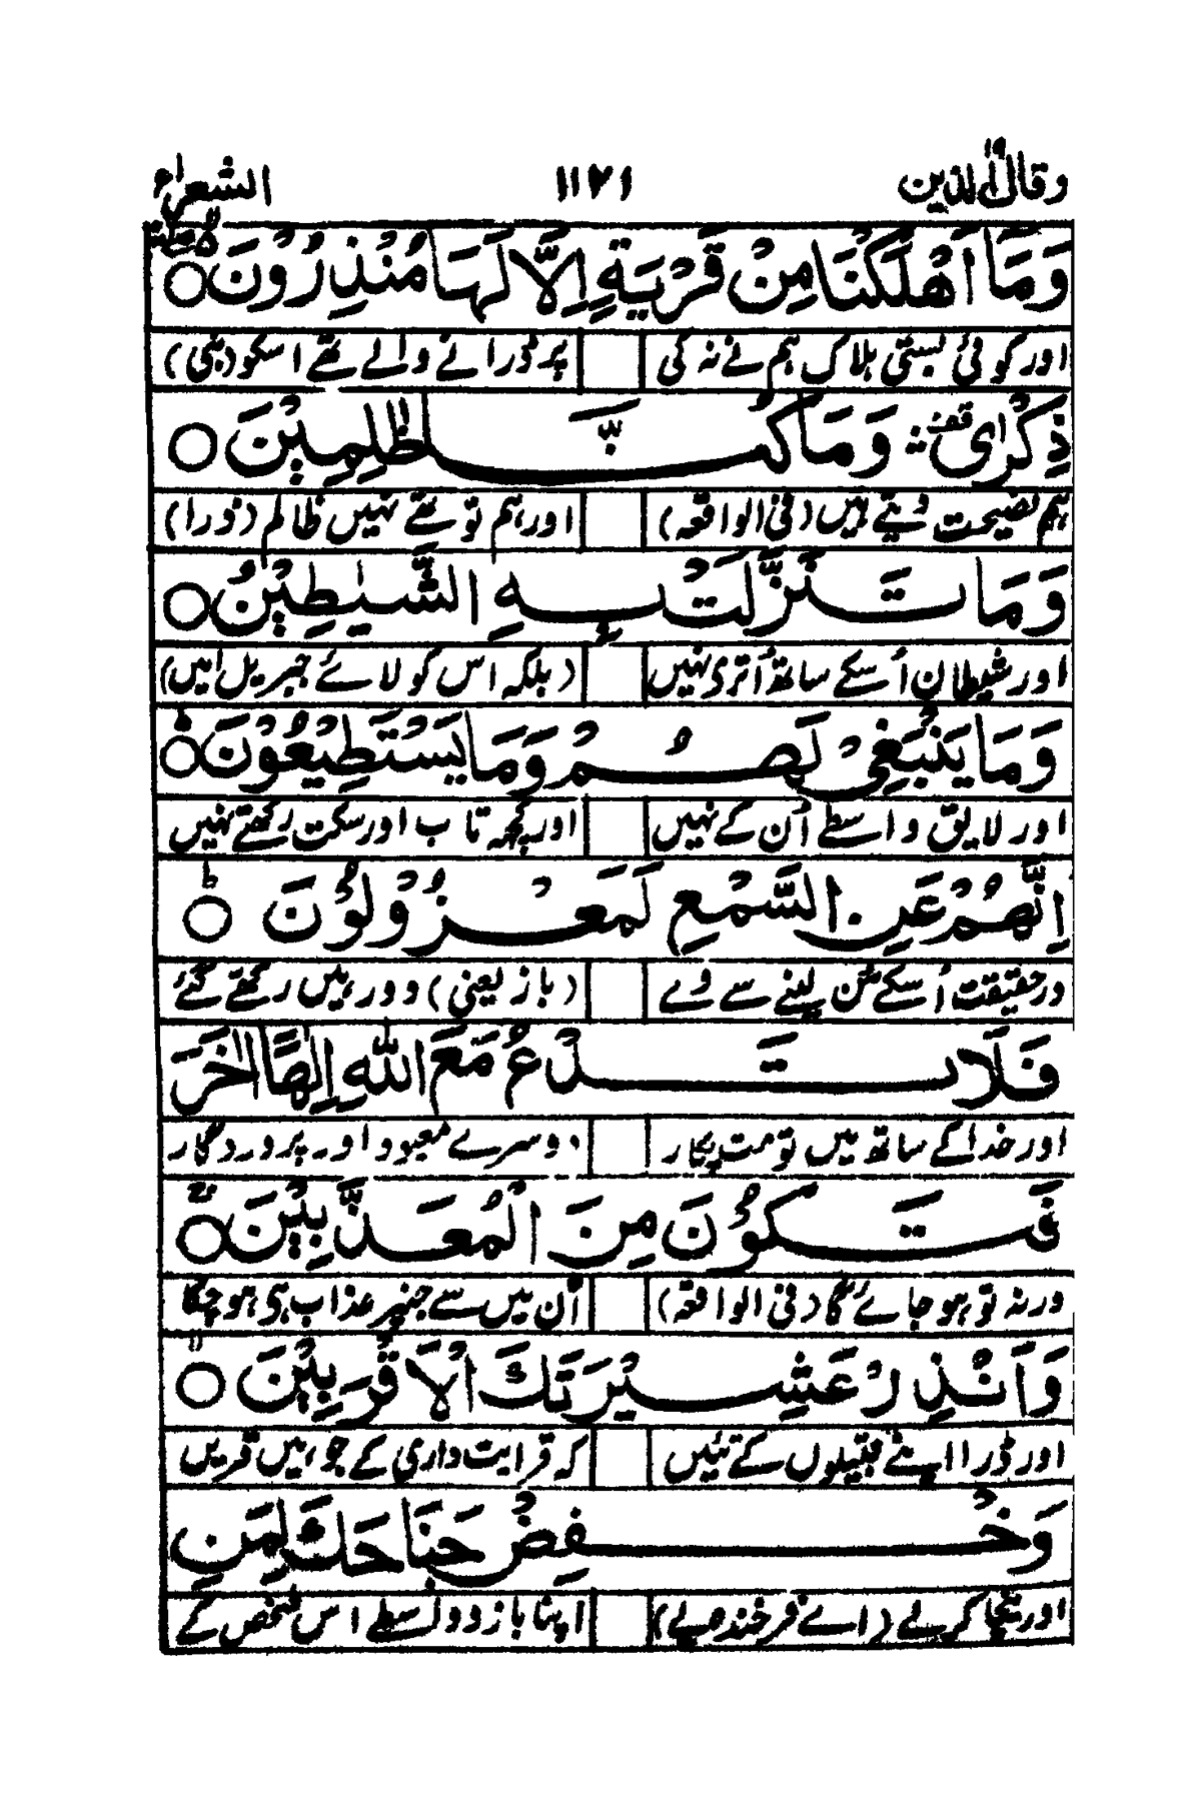 وقال الذین ۱۹ ۱۱۷۱ الشعراء
وَمَآ اَهْلَكْنَا مِنْ قَرْيَةٍ اِلَّا لَهَا مُنْذِرُوْنَ ○
اور کوئی بستی ہلاک ہم نے نہ کی پر ڈرانے والے تھے اسکو (نبی)
ذِكْرٰى وَمَا كُنَّا ظٰلِمِيْنَ ○
ہم نصیحت دیتے ہیں (فی الواقعہ) اور ہم تو تھے نہیں ظالم (ذرا)
وَمَا تَنَزَّلَتْ بِهِ الشَّيٰطِيْنُ ○
اور شیطان اُسکے ساتھ اُتری نہیں (بلکہ اس کو لائے جبریل امیں)
وَمَا يَنْبَغِيْ لَهُمْ وَمَا يَسْتَطِيْعُوْنَ ○ ط
اور لایق واسطے اُن کے نہیں اور کچھ تاب اور سکت رکھتے نہیں
اِنَّهُمْ عَنِ السَّمْعِ لَمَعْزُوْلُوْنَ ○ ط
در حقیقت اُسکے سُن لینے سے وے (باز یعنی) دور ہیں رکھے گئے
فَلَا تَدْعُ مَعَ اللّٰهِ اِلٰهًا اٰخَرَ
اور خدا کے ساتھ میں تو مت پکار دوسرے معبود اور پروردگار
فَتَكُوْنَ مِنَ الْمُعَذَّبِيْنَ ○
ورنہ تو ہو جائے گا (فی الواقعہ) اُن میں سے جنپر عذاب ہی ہو چکا
وَاَنْذِرْ عَشِيْرَتَكَ الْاَقْرَبِيْنَ ○
اور ڈرا اپنے قبیلوں کے تئیں کہ قرابت داری کے جو ہیں قریں
وَاخْفِضْ جَنَاحَكَ لِمَنِ
اور نیچا کر لے (اے فرخندہ پے) اپنا بازو واسطے اس شخص کے